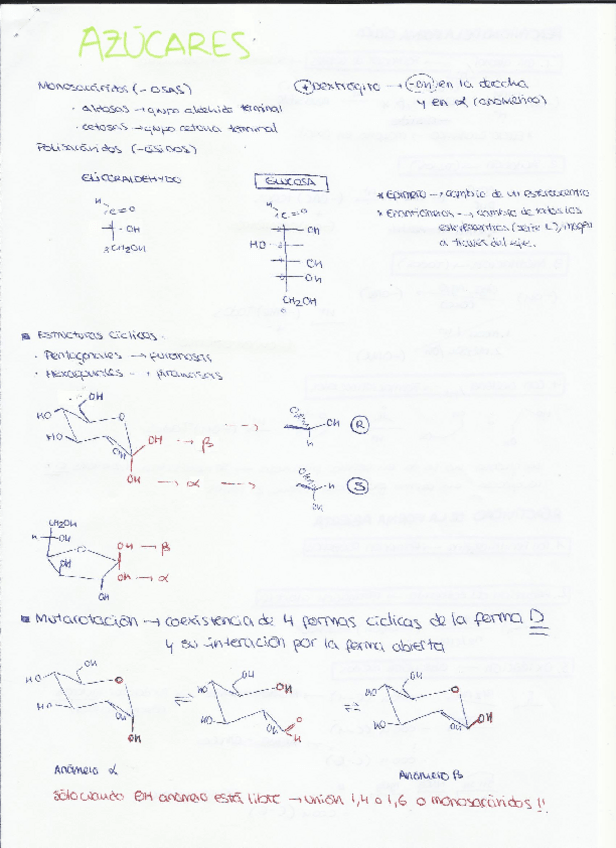 AZÚCARES
Monosacáridos (-OSAS)
· aldosas → grupo aldehido terminal
· cetosas → grupo cetona terminal
Polisacáridos (-ósidos)
⊕ Dextrógiro → (-OH) en la derecha
y en α (anomérico)
GLICERALDEHYDO
H
C=O
OH
CH2OH
GLUCOSA
H
C=O
OH
HO
OH
OH
CH2OH
* Epímero → cambio de un estereocentro
* Enantiómeros → cambio de todos los
estereocentros (serie L), imagen
a través del eje.
Estructuras cíclicas.
· Pentagonales → furanosas
· Hexagonales → piranosas
OH
HO
O
HO
OH
OH → β
OH → α
O
OH
H
R
O
H
OH
S
CH2OH
H
OH
O
OH
OH
OH → β
OH → α
Mutarotación → coexistencia de 4 formas cíclicas de la forma D
y su interación por la forma abierta
HO
OH
O
HO
OH
OH
⇌
HO
OH
OH
HO
OH
O
H
⇌
HO
OH
O
HO
OH
OH
Anómero α
Anómero β
Sólo cuando OH anómero está libre → unión 1,4 o 1,6 o monosacáridos !!